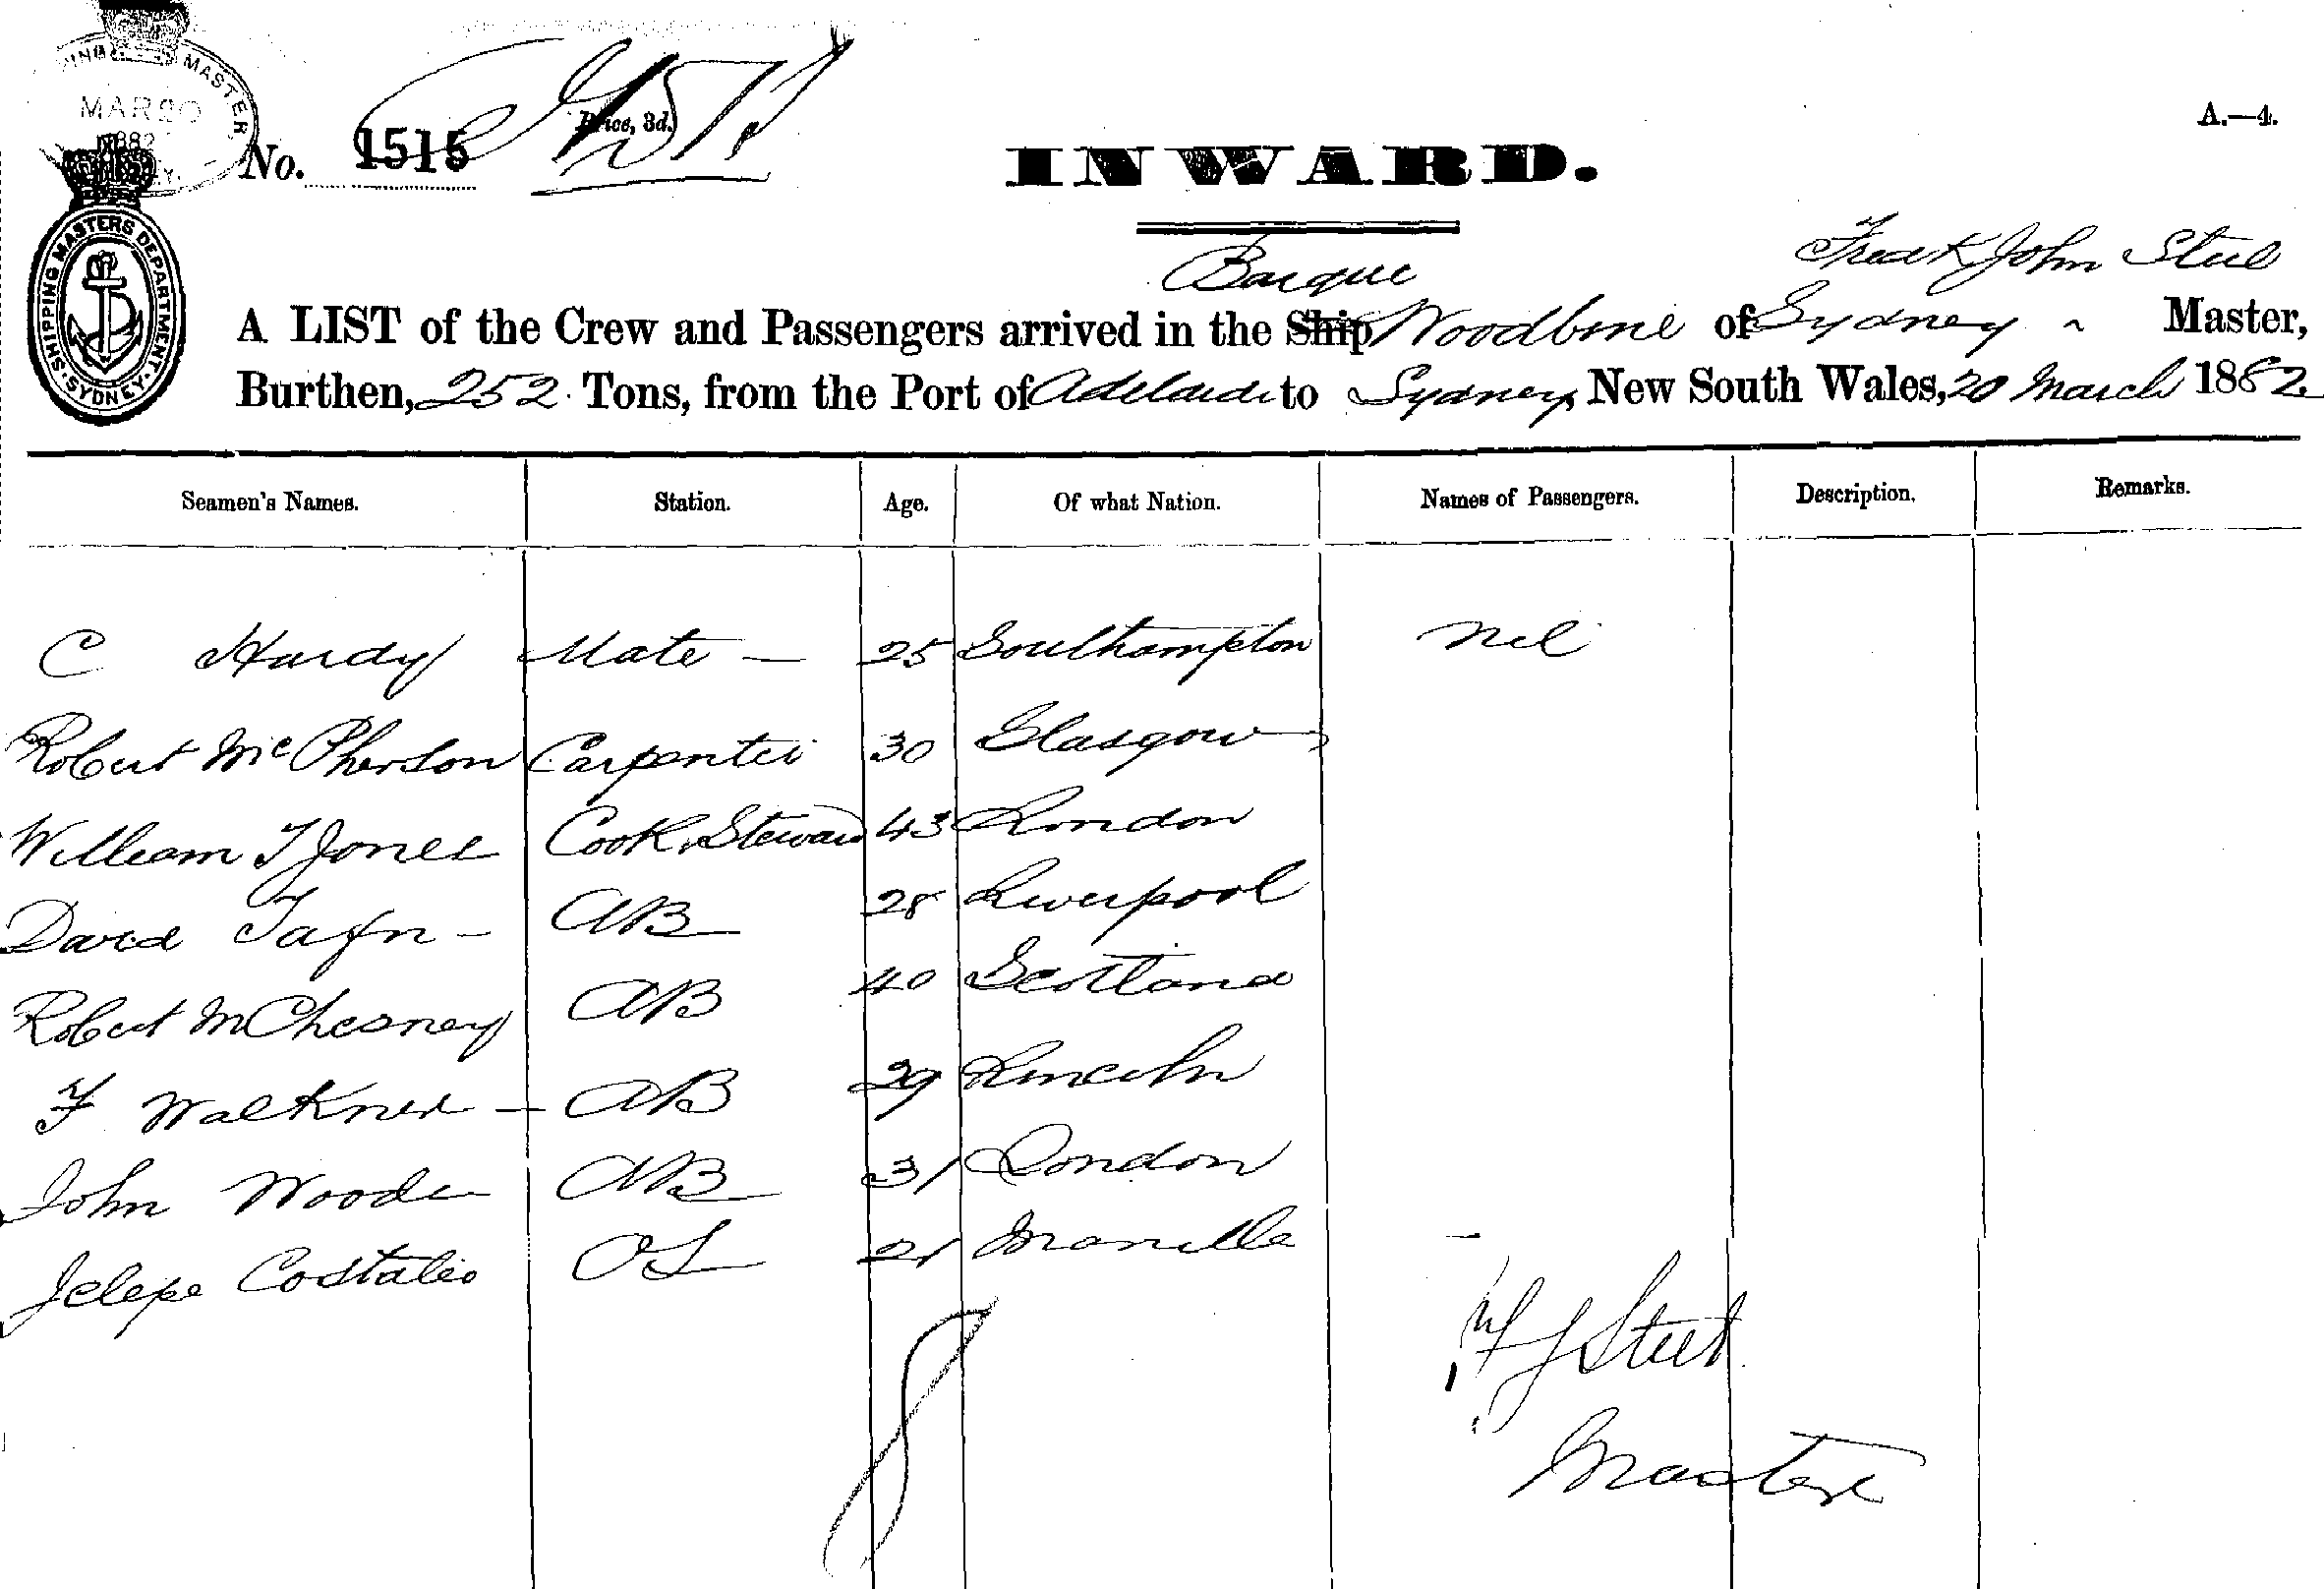 SHIPPING MASTER
MAR 20
1882
SYDNEY
No. 1515
Price, 3d.
A.—4.
INWARD.
SHIPPING MASTERS DEPARTMENT · SYDNEY ·
Barque
Fredk John Steel
A LIST of the Crew and Passengers arrived in the Ship Woodbine of Sydney Master,
Burthen, 252 Tons, from the Port of Adelaide to Sydney, New South Wales, 20 March 1882
Seamen's Names. Station. Age. Of what Nation. Names of Passengers. Description. Remarks.
C Hardy Mate — 25 Southampton Nil
Robert McPherson Carpenter 30 Glasgow
William T Jones Cook & Steward 43 London
David - AB 28 Liverpool
Robert McChesney AB 40 Scotland
F Walkner — AB 29 Lincoln
John Wood AB 31 London
Costaleo OS 21 Manilla
8
F J Steel
Master